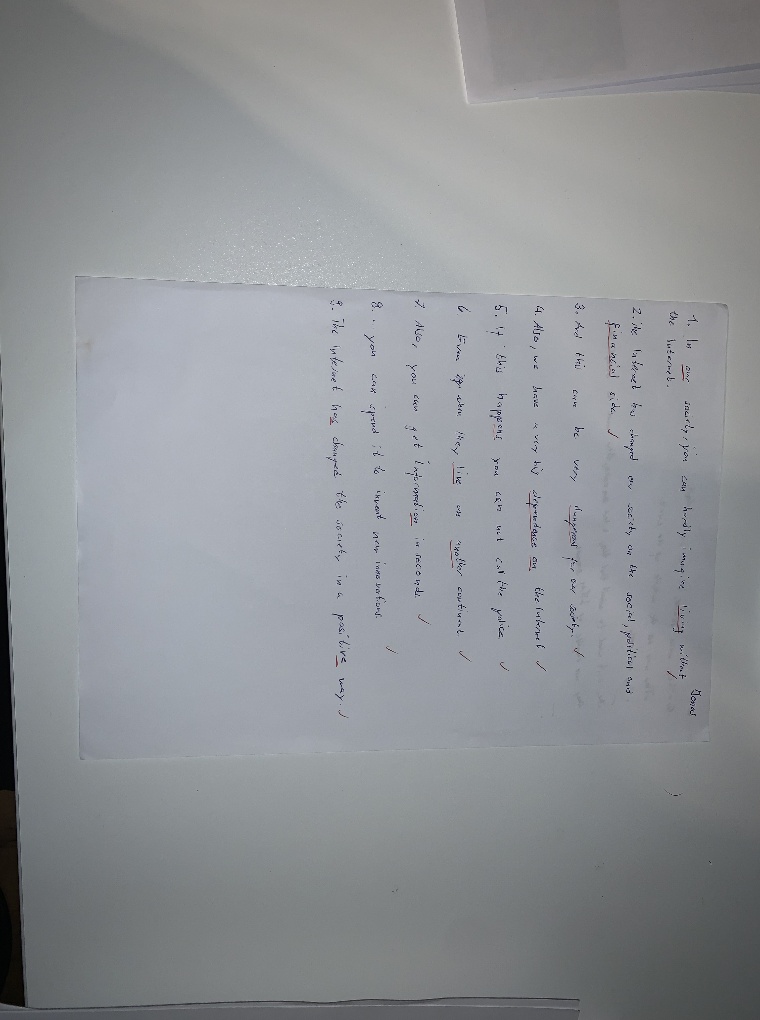 Jonas
1. In our society, you can hardly imagine living without
the Internet.
2. The Internet has changed our society on the social, political and
financial side.
3. And this can be very dangerous for our society.
4. Also, we have a very big dependence on the Internet
5. If this happens you can not call the police
6 Even when they live on another continent
7. Also, you can get information in seconds.
8. you can spend it to invent new innovations.
9. The Internet has changed the society in a positive way.